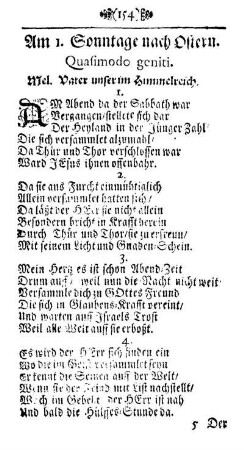 (154)
Am 1. Sonntage nach Ostern.
Quasimodo geniti.
Mel. Vater unser im Himmelreich.
1.
AM Abend da der Sabbath war
Vergangen/ stellete sich dar
Der Heyland in der Jünger Zahl
Die sich versammlet alzumahl/
Da Thür und Thor verschlossen war
Ward JEsus ihnen offenbahr.
2.
Da sie aus Furcht einmühtiglich
Allein versammlet hatten sich/
Da läßt der HErr sie nicht allein
Besondern bricht in Krafft herein
Durch Thür und Thor/ sie zu erfreun/
Mit seinem Licht und Gnaden-Schein.
3.
Mein Hertz es ist schon Abend-Zeit
Drum auff/ weil nun die Nacht nicht weit
Versammle dich zu GOttes Freund
Die sich in Glaubens-Krafft vereint/
Und warten auff Israels Trost
Weil alle Welt auff sie erboßt.
4.
Es wird der HErr sich finden ein
Wo die im Geist versammlet seyn
Er kennt die Seinen auß der Welt/
Wenn sie der Feind mit List nachstellt/
Wach im Gebeht der HErr ist nah
Und bald die Hülffes-Stunde da.
5 Der